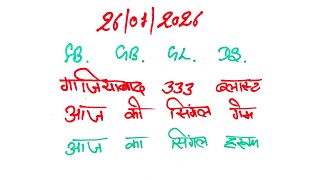 26/07/2026
FB. GB. GL. DS.
गाजियाबाद 333 ब्लास्ट
आज की सिंगल गेम
आज का सिंगल हरूफ